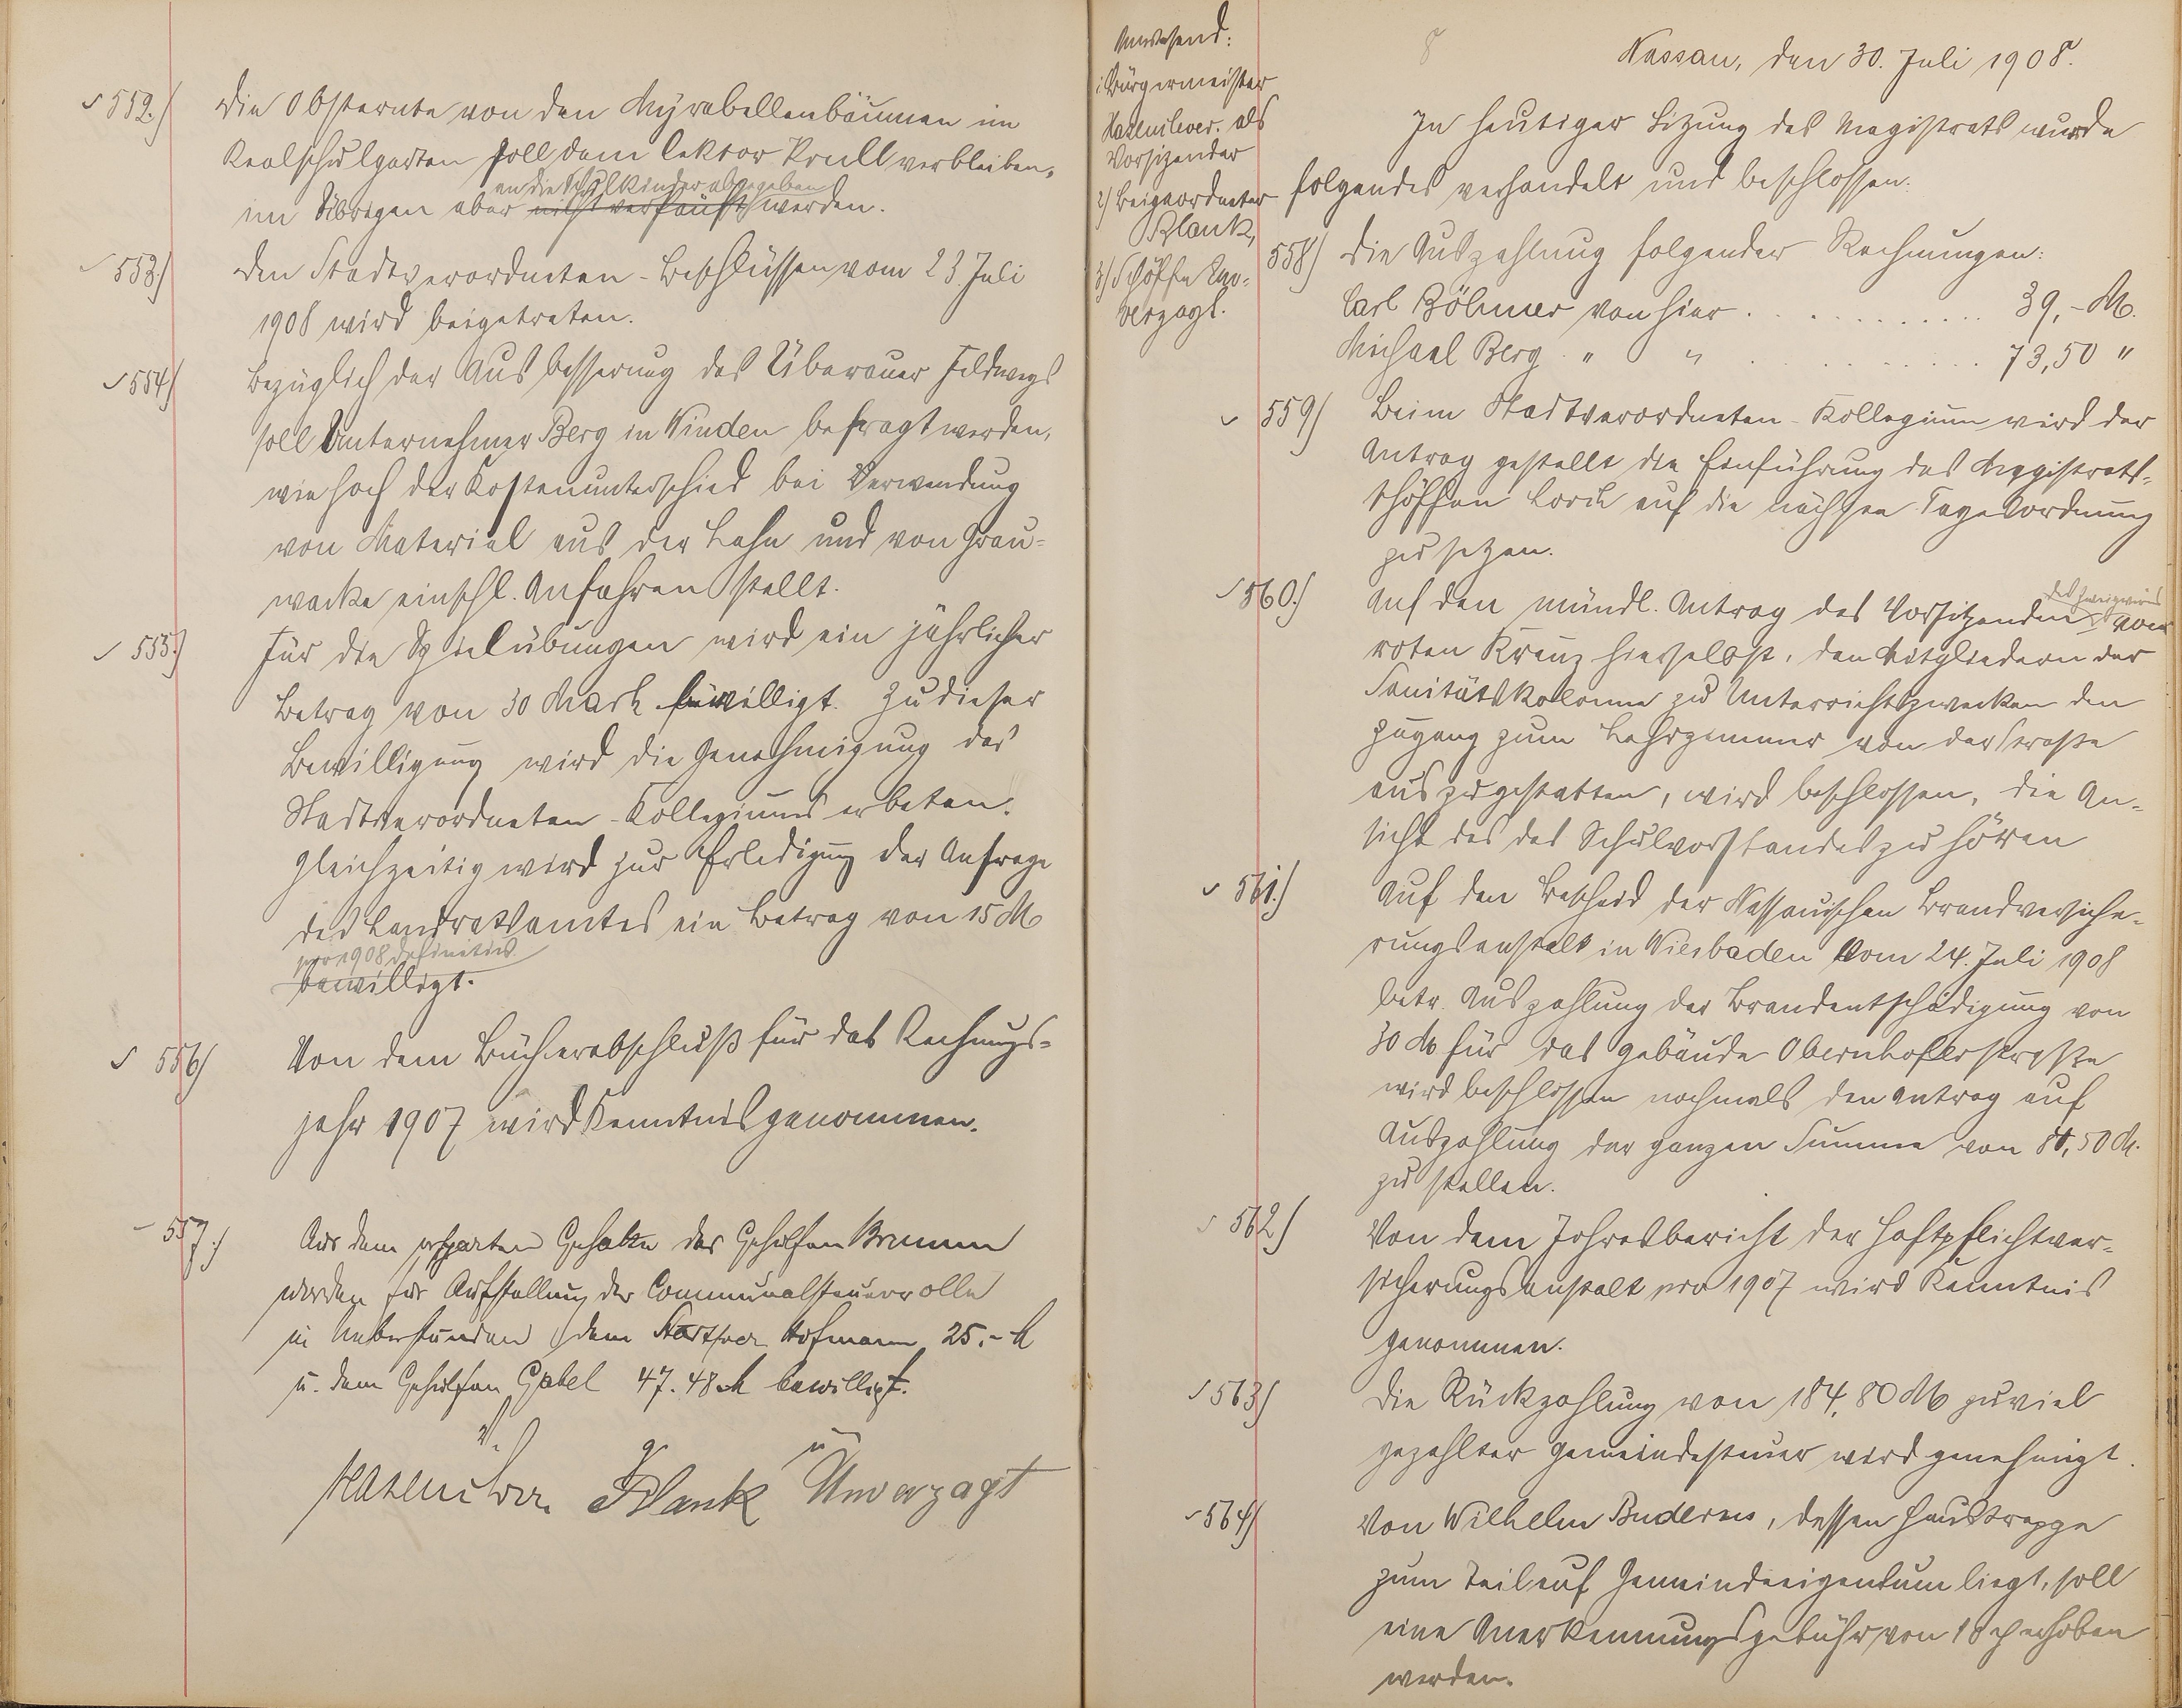 552.) Die Obsternte von den Myrabellenbäumen im
Realschulgarten soll dem Rektor Krull verbleiben,
an die Schulkinder abgegeben
im Übrigen aber nicht verkauft werden.
553.) Den Stadtverordneten-Beschlüssen vom 23. Juli
1908 wird beigetreten.
554.) Bezüglich der Ausbesserung des Überauer Feldwegs
soll Unternehmer Berg in Winden befragt werden,
wie hoch der Kostenunterschied bei Verwendung
von Material aus der Lahn und von Grau-
wacke einschl. Anfahren stellt.
555.) Für die Spielübungen wird ein jährlicher
Betrag von 30 Mark bewilligt. Zu dieser
Bewilligung wird die Genehmigung des
Stadtverordneten-Kollegiums erbeten.
Gleichzeitig wird zur Erledigung der Anfrage
des Landratsamtes ein Betrag von 15 M
pro 1908 definitiv
bewilligt.
556) Von dem Bücherabschluß für das Rechnungs-
jahr 1907 wird Kenntnis genommen.
557.) Aus dem ersparten Gehalte des Gehülfen Bremm
werden für Aufstellung der Communalsteuerrolle
in Ueberstunden dem Hofmann 25.- M
u. dem Gehülfen Gabel 47.48 M bewilligt.
Hasenclever Blank Unverzagt
Anwesend:
1) Bürgermeister
Hasenclever. als
Vorsizender
2) Beigeordneter
Blank,
3) Schöffe Un-
verzagt.
Nassau, den 30. Juli 1908.
In heutiger Sizung des Magistrats wurde
folgendes verhandelt und beschlossen:
558) Die Auszahlung folgender Rechnungen:
Carl Böhmer von hier . . . . . . . . . 39,- M.
Michael Berg " " . . . . . . . . 73,50 "
559) Beim Stadtverordneten-Kollegium wird der
Antrag gestellt die Einführung des Magistrats-
schöffen Lorch auf die nächste Tagesordnung
zu setzen.
560.) Auf den mündl. Antrag des Vorsitzenden des Zweigvereins vom
roten Kreuz hierselbst, den Mitgliedern der
Sanitätskolonne zu Unterrichtszwecken den
Zugang zum Lehrzimmer von der Straße
aus zu gestatten, wird beschlossen, die An-
sicht des des Schulvorstandes zu hören
561.) Auf den Bescheid der Nassauischen Brandversiche-
rungsanstalt in Wiesbaden vom 24. Juli 1908
betr. Auszahlung der Brandentschädigung von
30 M für das Gebäude Obernhoferstraße
wird beschlossen nochmals den Antrag auf
Auszahlung der ganzen Summe von M.
zu stellen.
562) Von dem Jahresbericht der Haftpflichtver-
sicherungsanstalt pro 1907 wird Kenntnis
genommen.
563) Die Rückzahlung von 184,80 M zuviel
gezahlter Gemeindesteuer wird genehmigt.
564) Von Wilhelm Buderus, dessen Haustreppe
zum Teil auf Gemeindeeigentum liegt, soll
eine Anerkennungsgebühr von erhoben
werden.